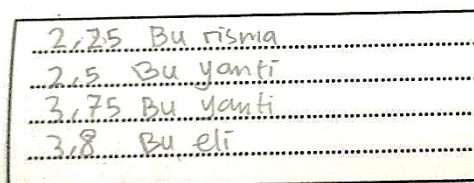 2,25 Bu risma
2,5 Bu yanti
3,75 Bu yanti
3,8 Bu eli